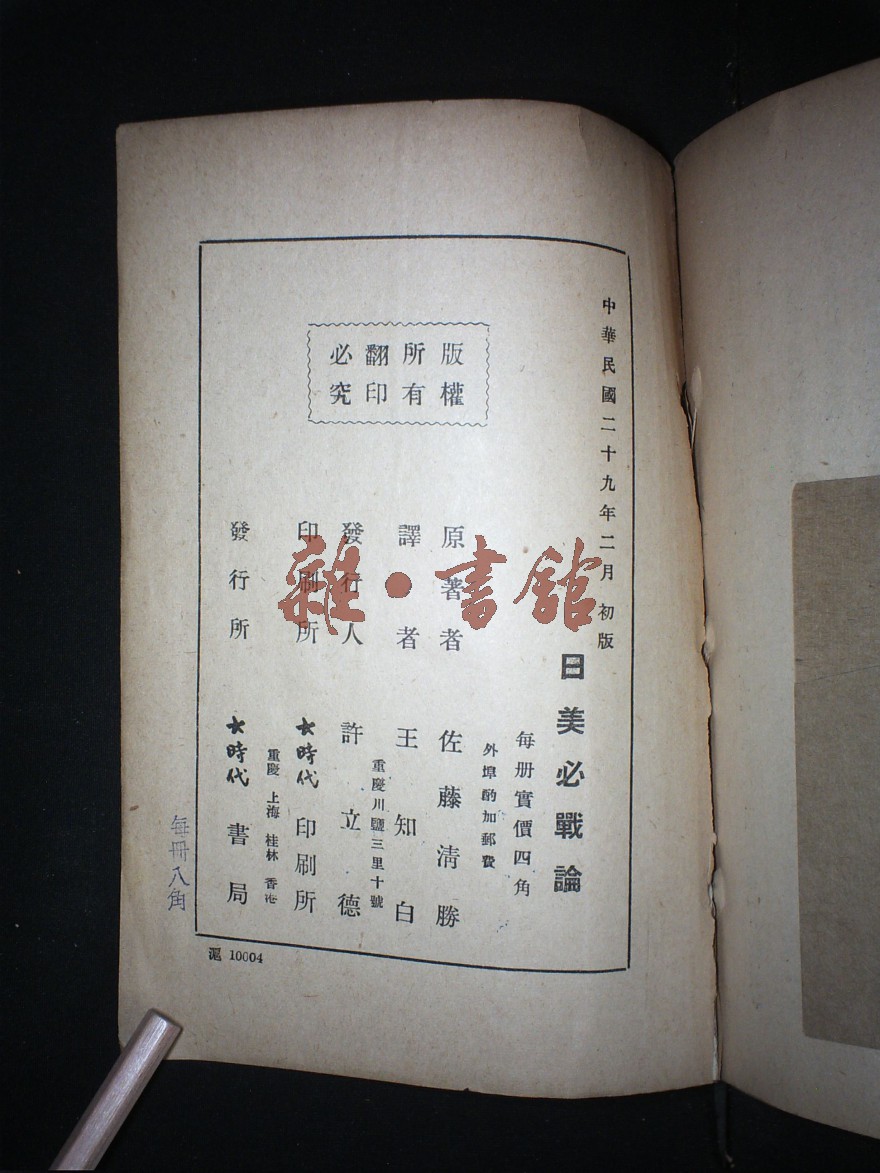 中華民國二十九年二月初版
日美必戰論
每册實價四角
外埠酌加郵費
版權
所有
翻印
必究
原著者 佐藤淸勝
譯者 王知白
重慶川鹽三里十號
發行人 許立德
重慶 上海 桂林 香港
印刷所 大時代印刷所
發行所 大時代書局
每冊八角
滬 10004
雜·書舘